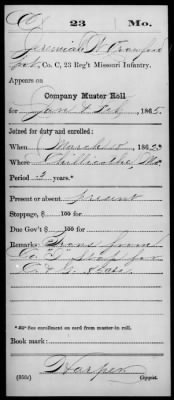 C 23 Mo.
Jeremiah W Crawford
Pvt, Co. C, 23 Reg't Missouri Infantry.
Appears on
Company Muster Roll
for Jan & Feb, 1865.
Joined for duty and enrolled:
When March 18, 1863
Where Chillicothe, Mo.
Period 3 years.*
Present or absent present
Stoppage, $ 100 for
Due Gov't $ 100 for
Remarks: Trans from
Co.
C. & G.
*See enrollment on card from muster-in roll.
Book mark:
Harper
(858c) Copyist.